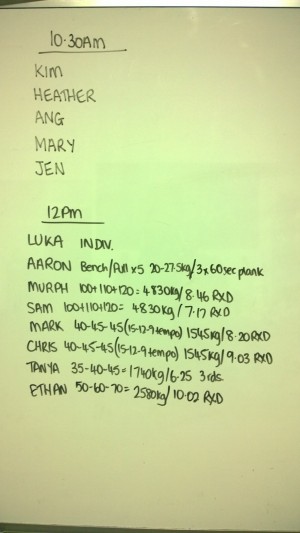 10.30AM
KIM
HEATHER
ANG
MARY
JEN
12PM
LUKA INDIV.
AARON Bench/Pull x5 20-27.5kg/3x60sec plank
MURPH 100+110+120=4830kg/8.46 RXD
SAM 100+110+120=4830kg/7.17 RXD
MARK 40-45-45(15-12-9 tempo) 1545kg/8.20 RXD
CHRIS 40-45-45(15-12-9 tempo) 1545kg/9.03 RXD
TANYA 35-40-45=1740kg/6.25 3rds.
ETHAN 50-60-70=2580kg/10.02 RXD